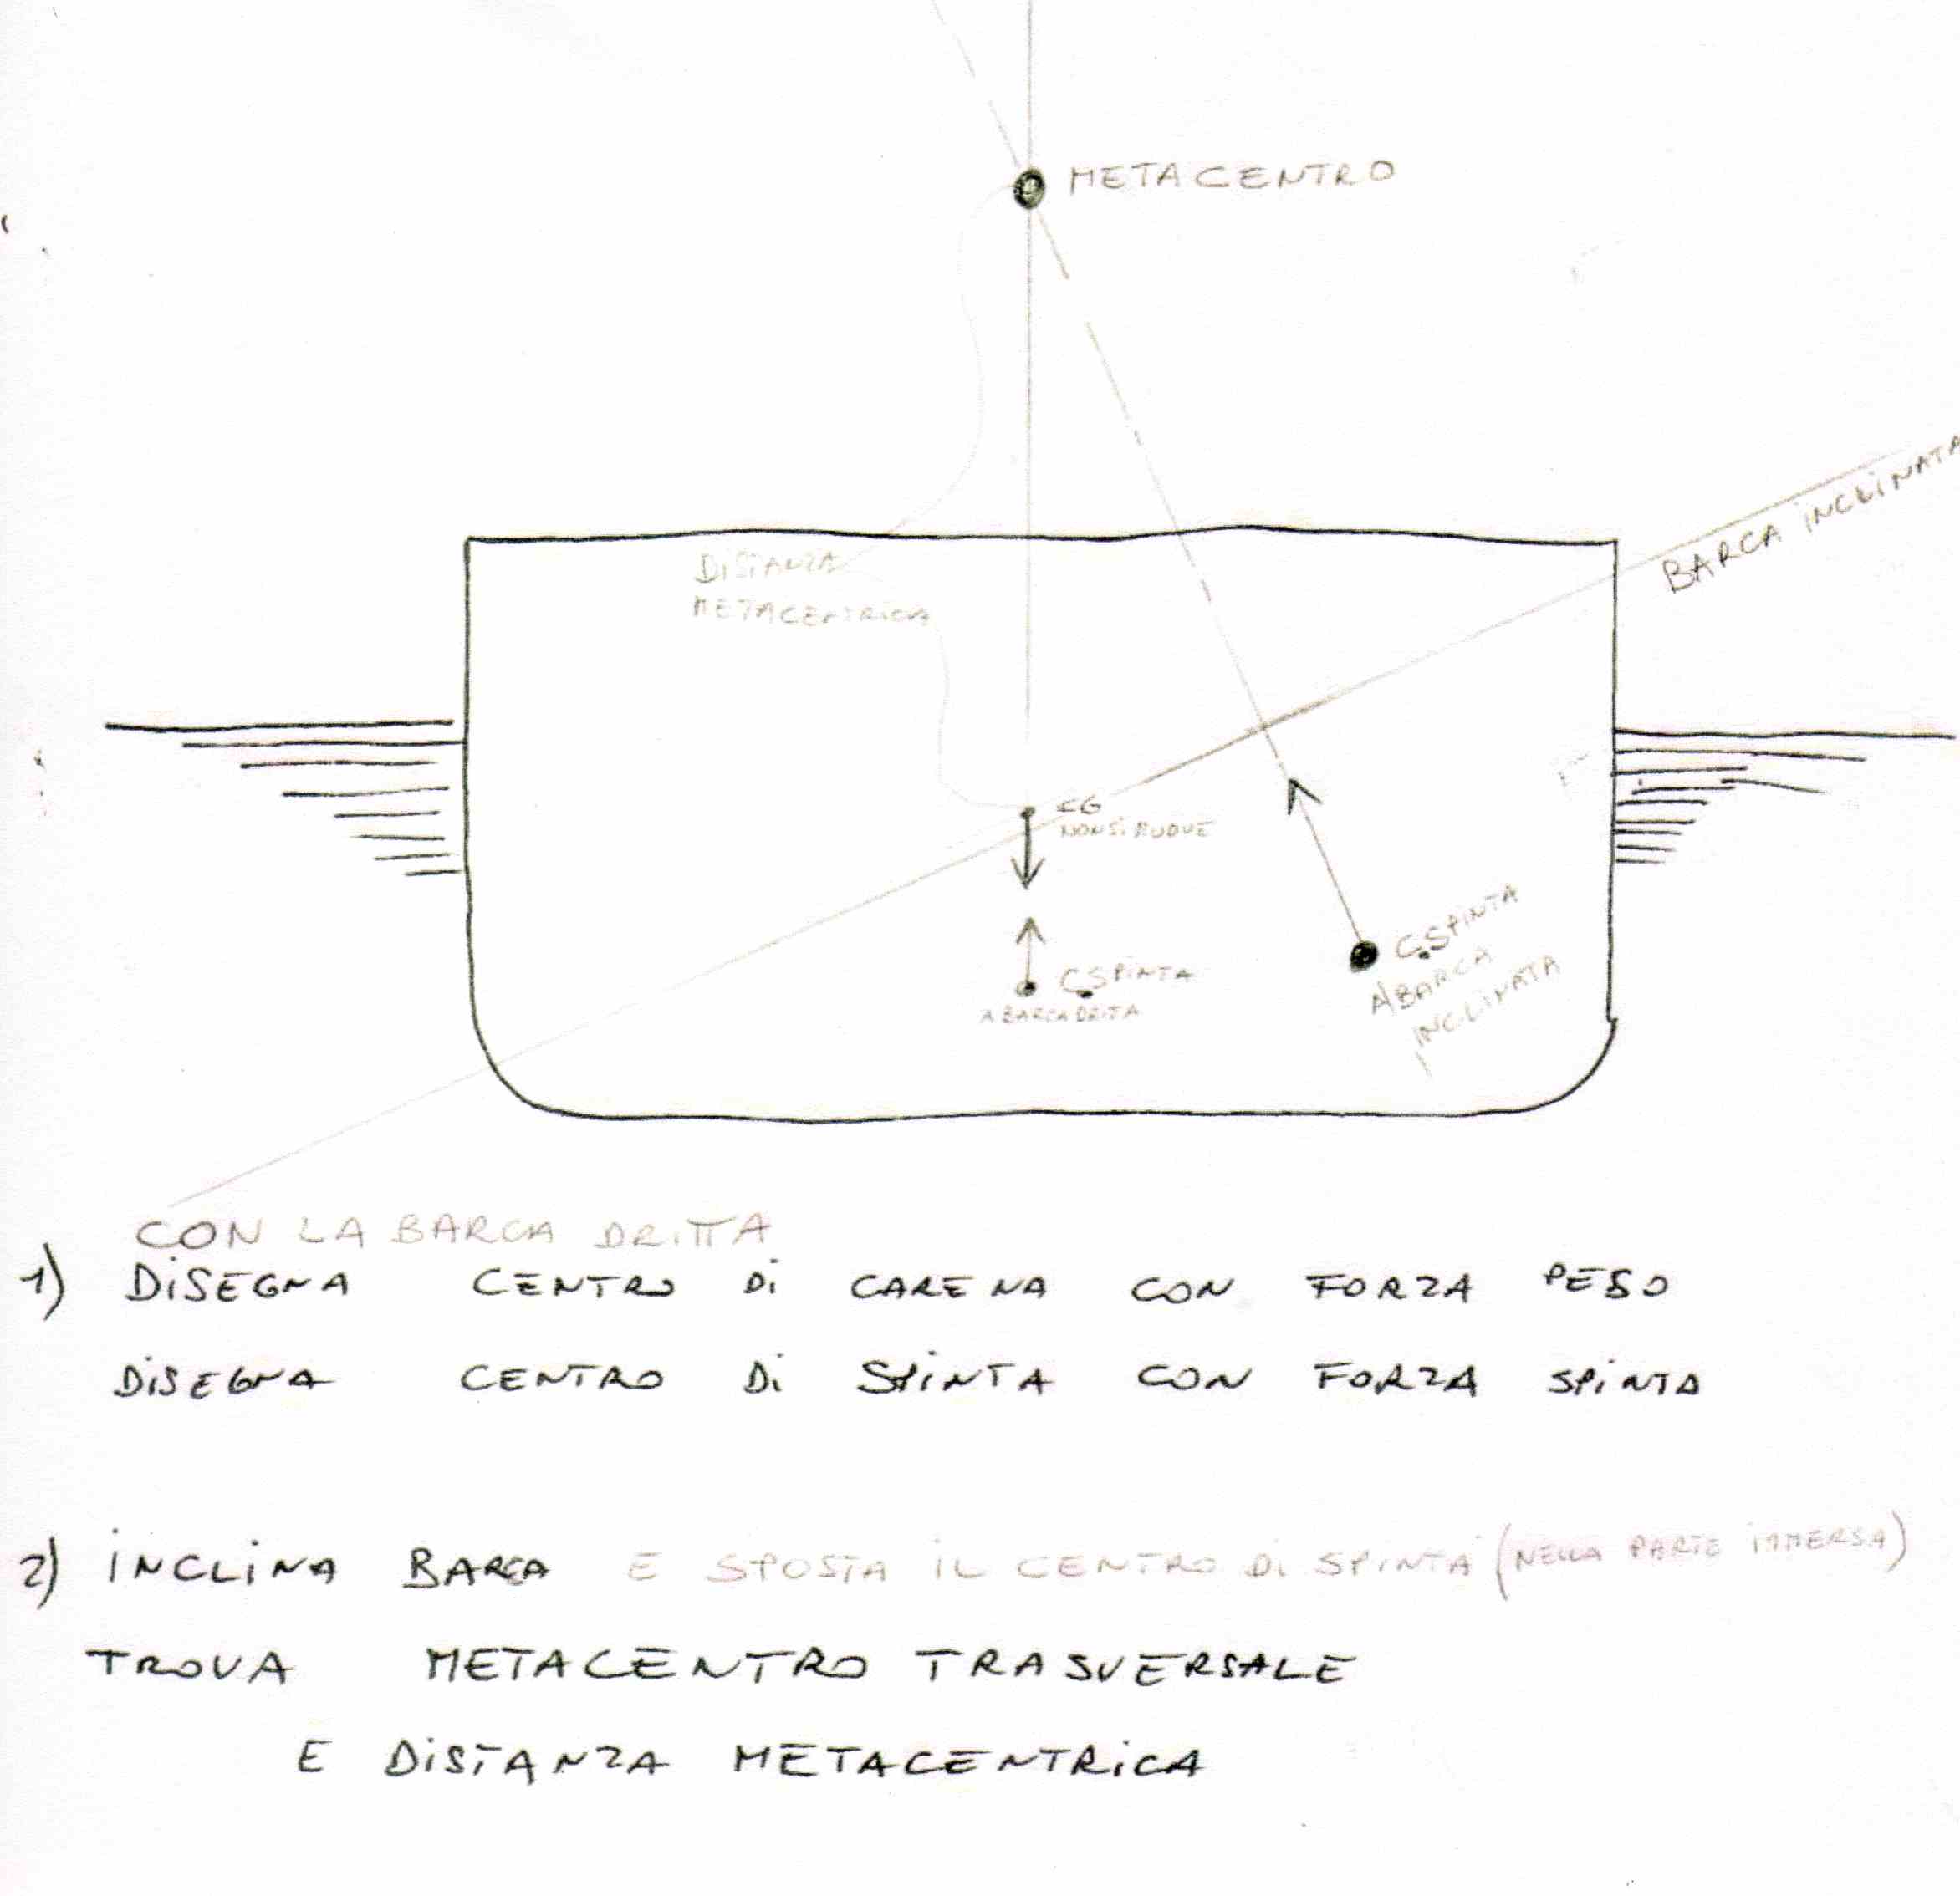 METACENTRO
BARCA INCLINATA
DISTANZA
METACENTRICA
CG
NON SI MUOVE
C.SPINTA
A BARCA DRITA
C.SPINTA
A BARCA
INCLINATA
CON LA BARCA DRITTA
1) DISEGNA CENTRO DI CARENA CON FORZA PESO
DISEGNA CENTRO DI SPINTA CON FORZA SPINTA
2) INCLINA BARCA E SPOSTA IL CENTRO DI SPINTA (NELLA PARTE IMMERSA)
TROVA METACENTRO TRASVERSALE
E DISTANZA METACENTRICA